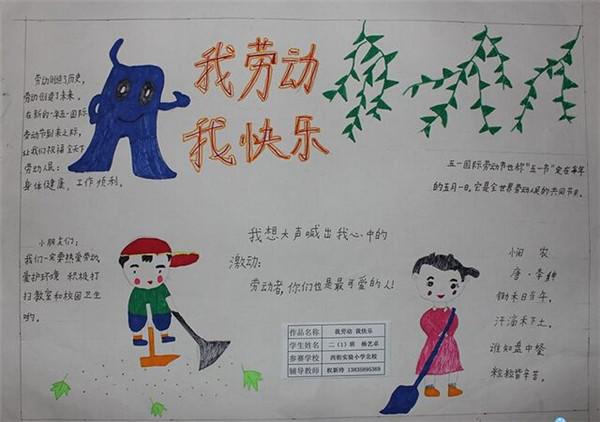 我劳动
我快乐
劳动创造了历史,
劳动创造了未来。
在新的一年五一国际
劳动节到来之际,
让我们祝福全天下
劳动人民:
身体健康,工作顺利。
五一国际劳动节也称"五一节"定在每年
的五月一日。它是全世界劳动人民的共同节日。
小朋友们:
我们一定要热爱劳动,
爱护环境 积极打
扫教室和校园卫生
哟。
我想大声喊出我心中的
激动:
劳动者,你们也是最可爱的人!
悯农
唐·李绅
锄禾日当午,
汗滴禾下土。
谁知盘中餐
粒粒皆辛苦。
作品名称 我劳动 我快乐
学生姓名 二(1)班 杨艺卓
参赛学校 西街实验小学北校
辅导教师 权新玲 13835895369